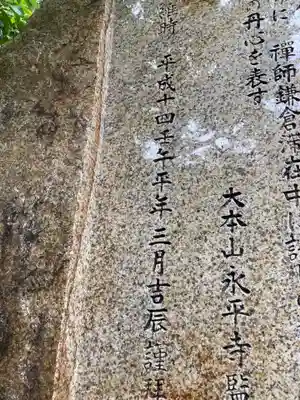 に禅師鎌倉滞在中に
の丹心を表す
維時 平成十四壬午平年 三月吉辰 謹拜
大本山永平寺監